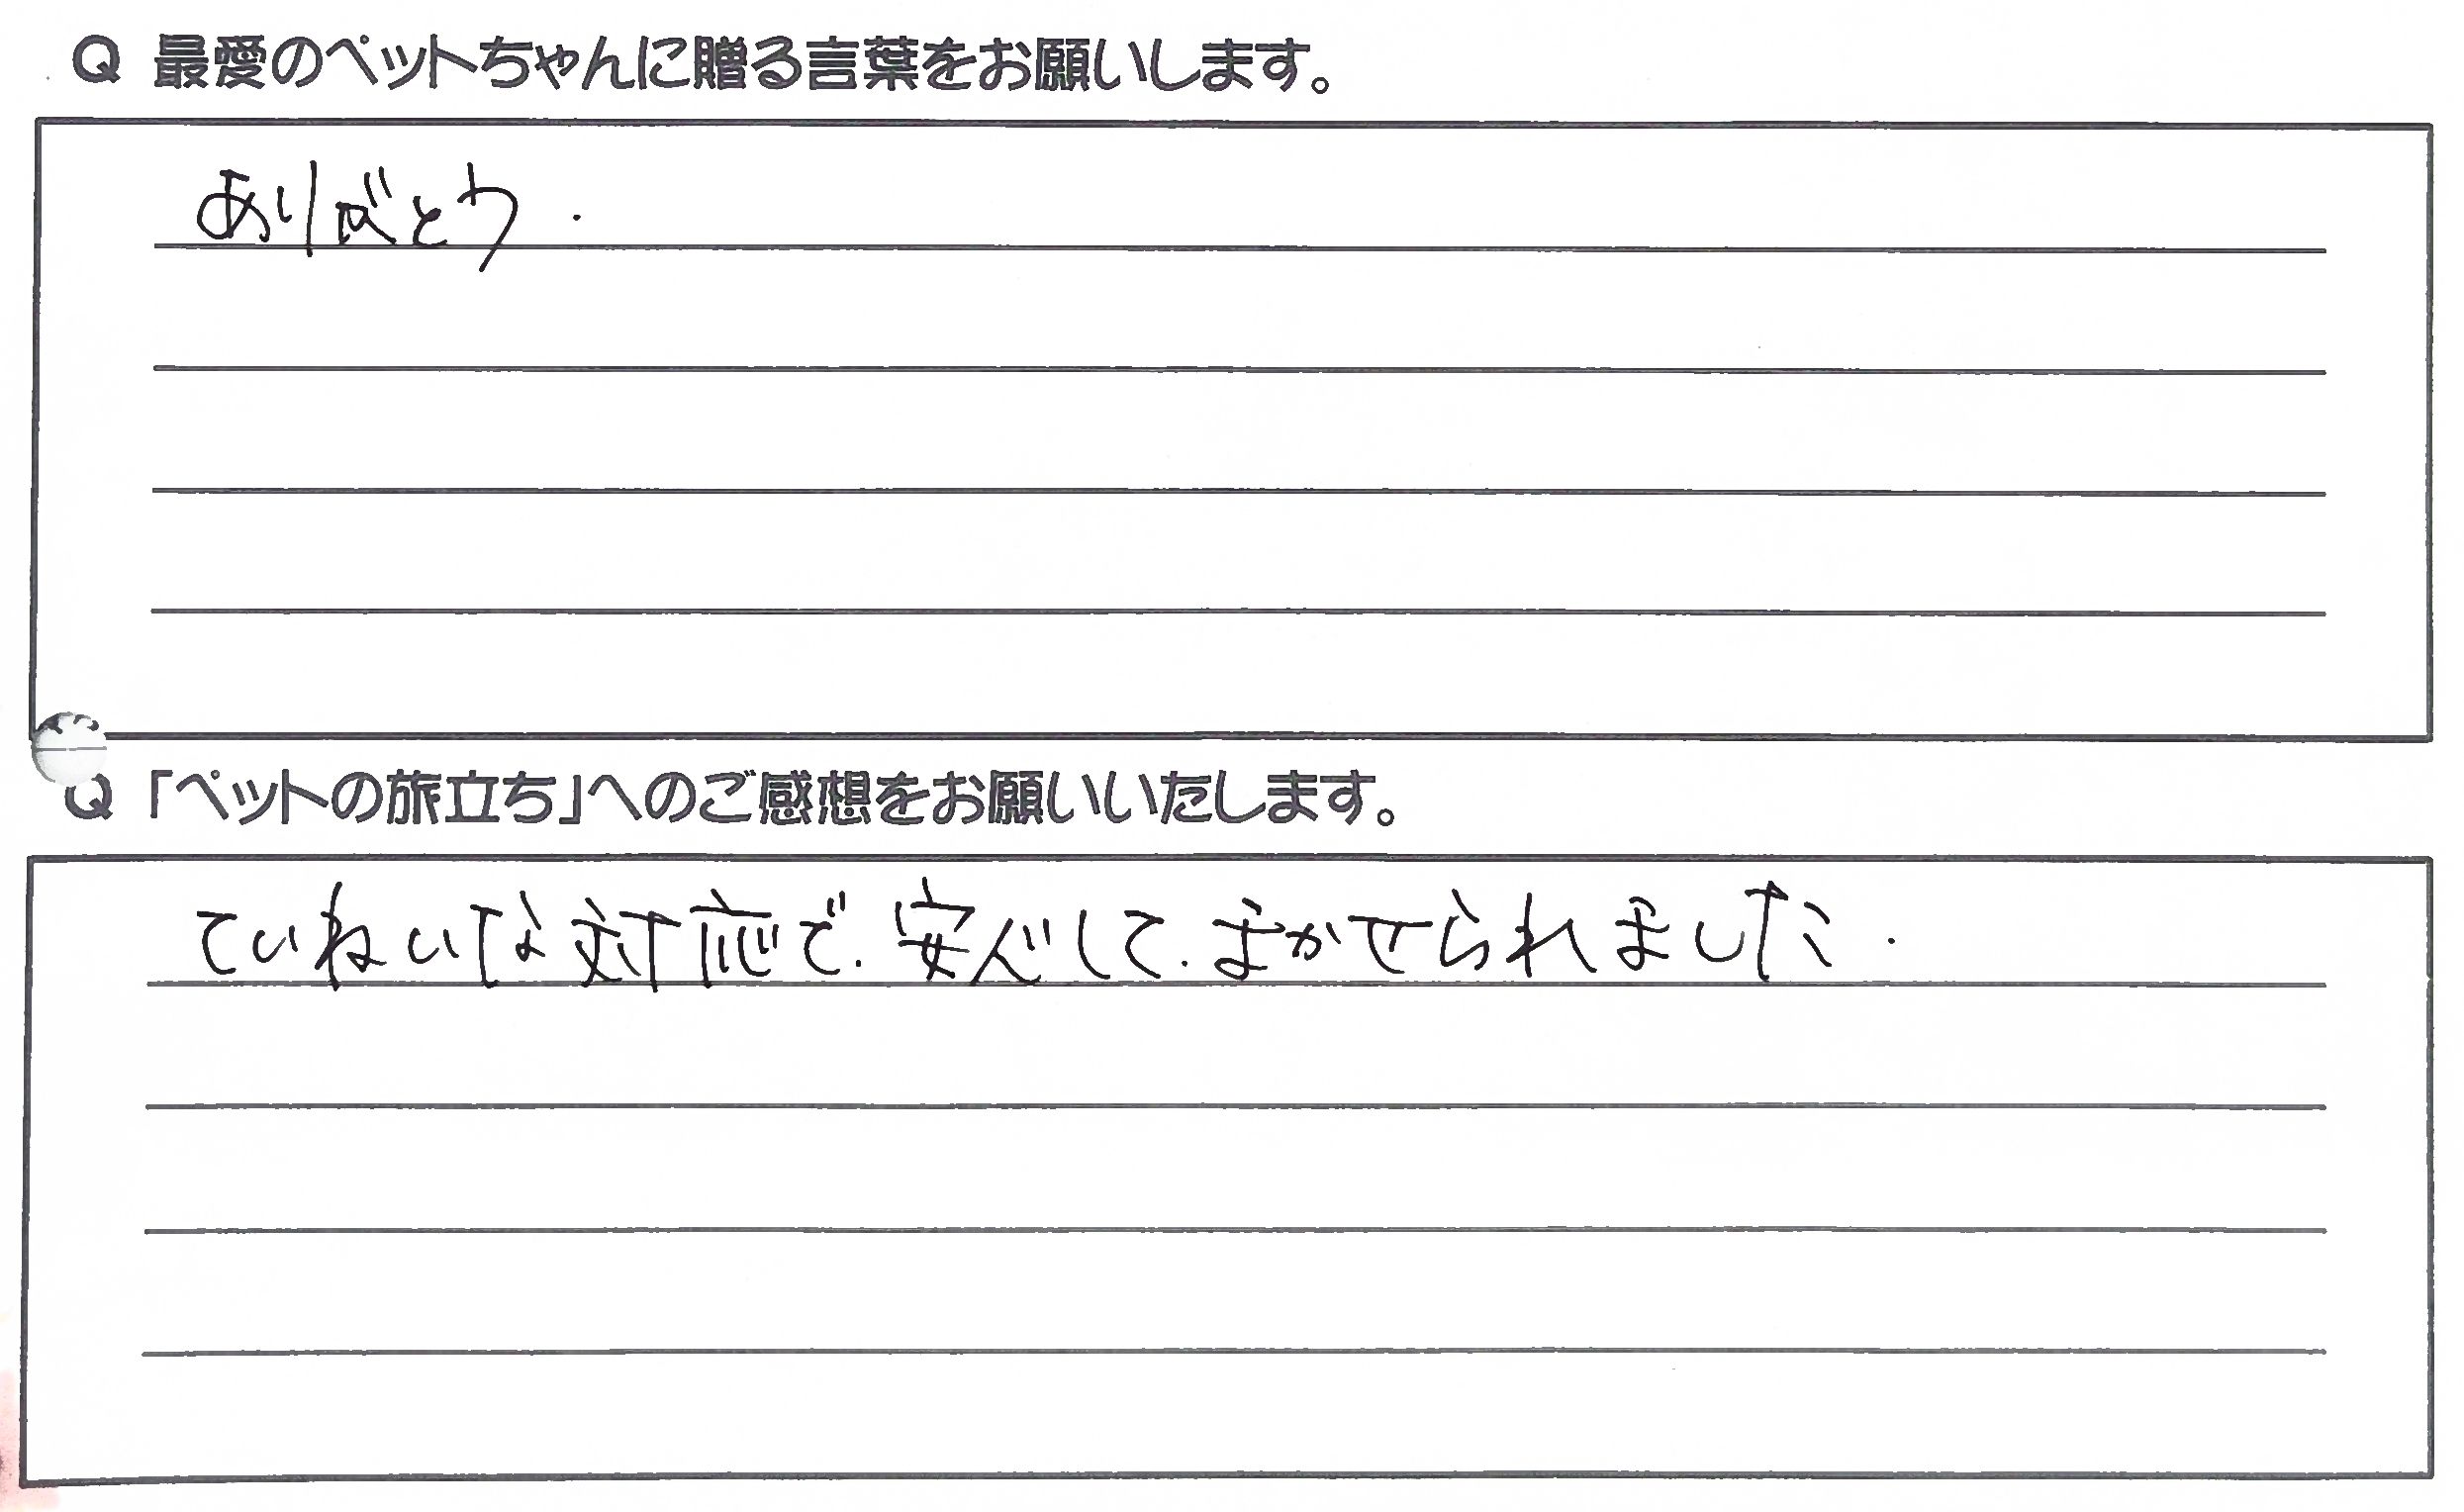 Q 最愛のペットちゃんに贈る言葉をお願いします。
ありがとう.
Q 「ペットの旅立ち」へのご感想をお願いいたします。
ていねいな対応で.安心して.まかせられました.